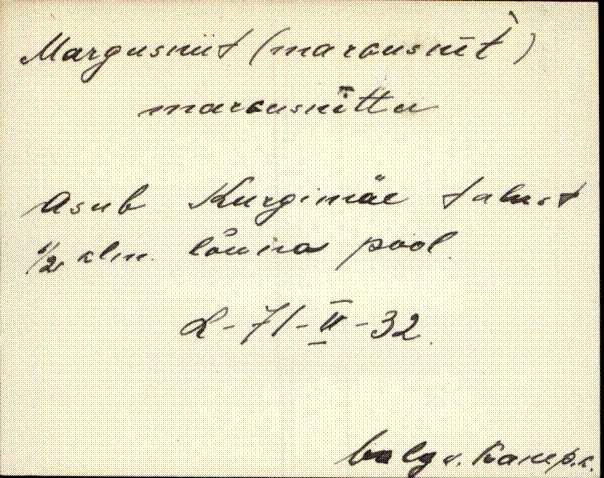 Margusniit (marɢusnīt̀)
marɢusnītta
Asub Kurgimäe talust
1/2 klm. lõuna pool.
L-71-II-32.
v. Kanep. k.